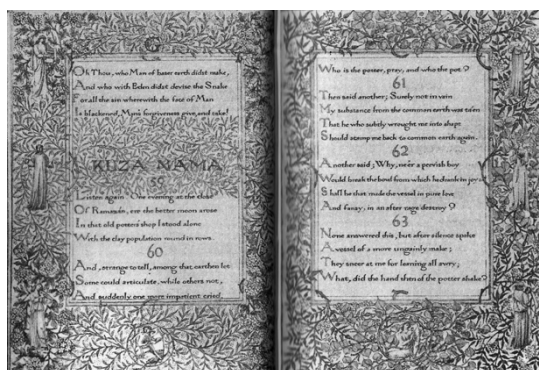 Oh Thou, who Man of baser earth didst make,
And who with Eden didst devise the Snake
For all the sin wherewith the face of Man
Is blackened, Man's forgiveness give, and take!
KUZA-NAMA
Listen again. One evening at the close
Of Ramazán, ere the better moon arose
In that old potter's shop I stood alone
With the clay population round in rows.
60
And, strange to tell, among that earthen lot
Some could articulate, while others not,
And suddenly one more impatient cried,
Who is the potter, pray, and who the pot?
61
Then said another; Surely not in vain
My substance from the common earth was ta'en
That he who subtly wrought me into shape
Should stamp me back to common earth again.
62
Another said; Why, ne'er a peevish boy
Would break the bowl from which he drank in joy
Shall he that made the vessel in pure love
And fansy, in an after rage destroy?
63
None answered this, but after silence spake
A vessel of a more ungainly make;
They sneer at me for leaning all awry;
What, did the hand then of the potter shake?